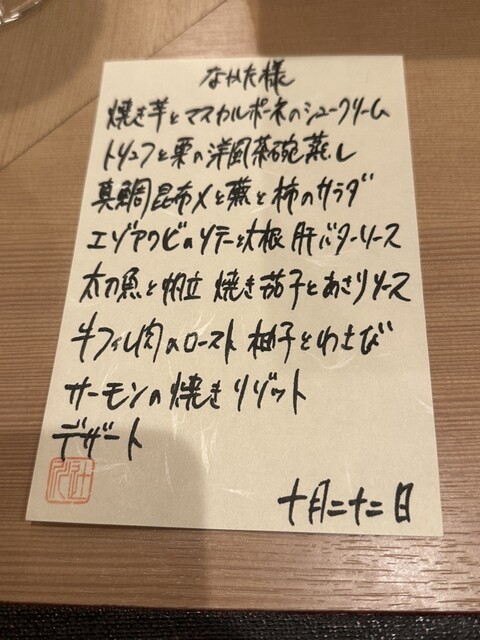 なかた様
焼き芋とマスカルポーネのシュークリーム
トリュフと栗の洋風茶碗蒸し
真鯛昆布〆と蕪と柿のサラダ
エゾアワビのソテーと大根 肝バターソース
太刀魚と帆立 焼き茄子とあさりソース
牛フィレ肉のロースト 柚子とわさび
サーモンの焼きリゾット
デザート
十月二十二日